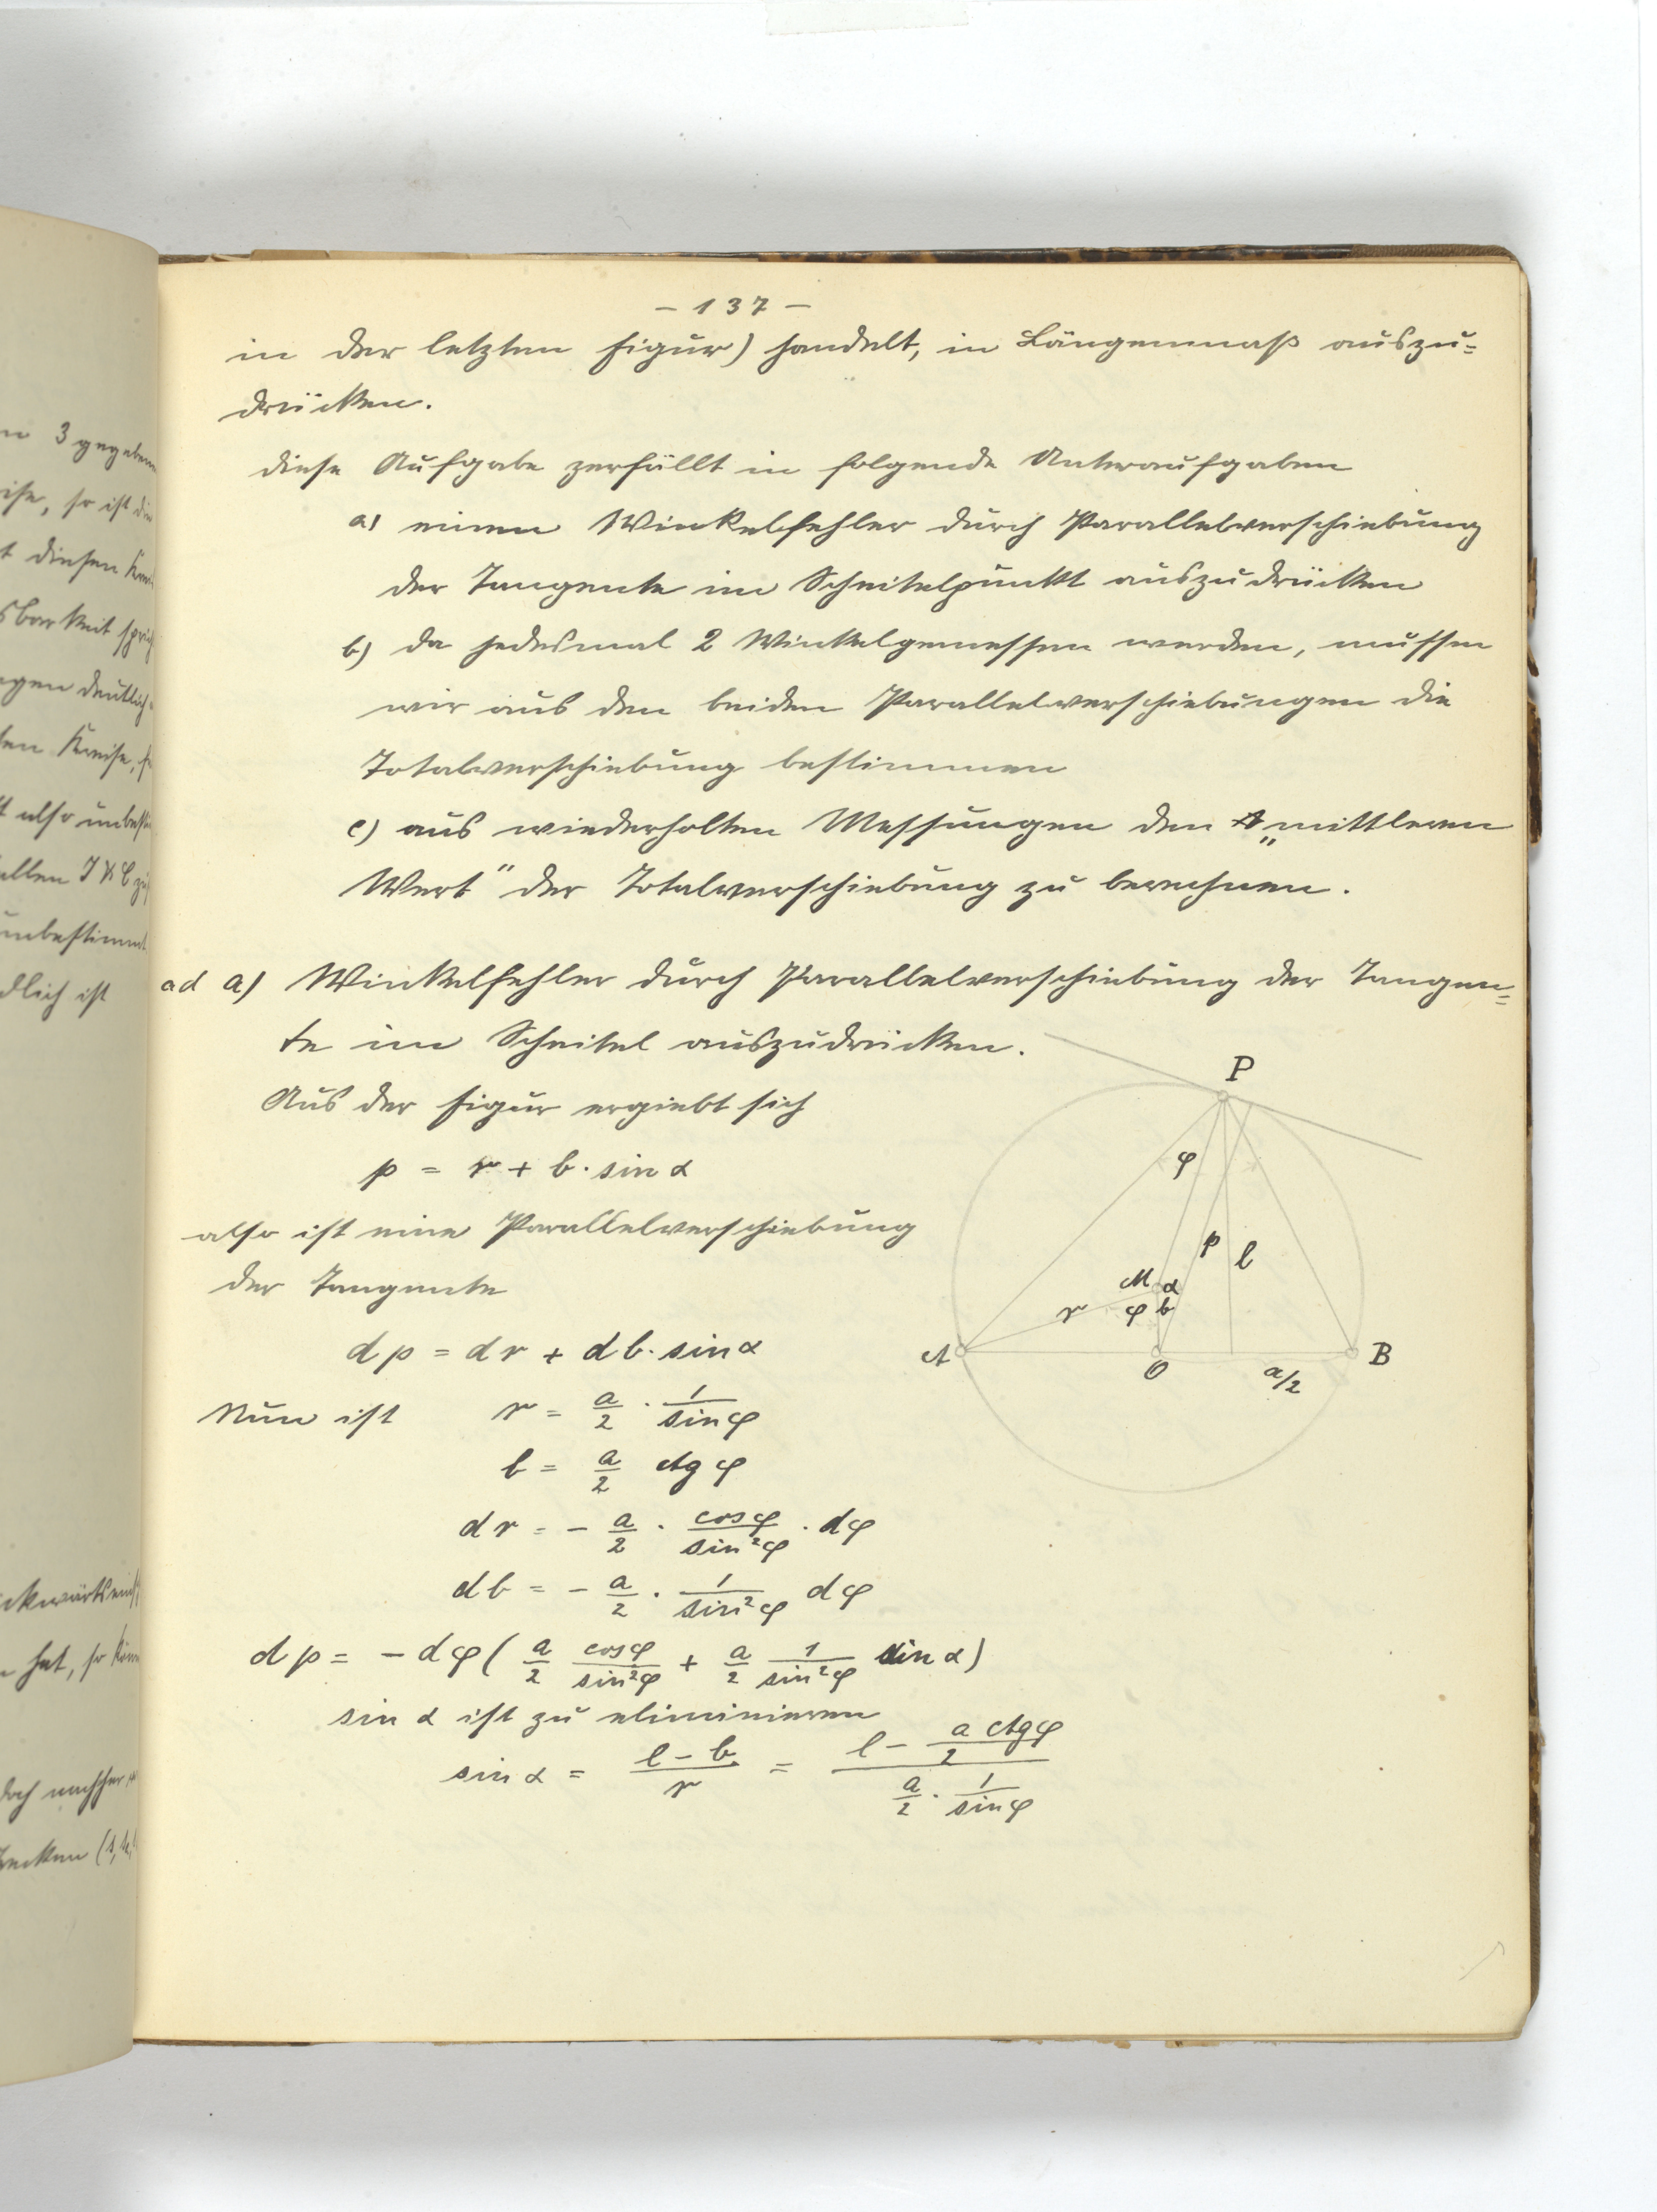 - 137 -
in der letzten Figur) handelt, in Längenmaß auszu=
drücken.
diese Aufgabe zerfällt in folgende Unteraufgaben
a) einen Winkelfehler durch Parallelverschiebung
der Tangente im Scheitelpunkt auszudrücken
b) da jedesmal 2 Winkel gemessen werden, müssen
wir aus den beiden Parallelverschiebungen die
Totalverschiebung bestimmen
c) aus wiederholten Messungen den „mittleren
Wert" der Totalverschiebung zu berechnen.
ad a) Winkelfehler durch Parallelverschiebung der Tangen=
te im Scheitel auszudrücken.
Aus der Figur ergiebt sich
p = r + b · sin α
also ist eine Parallelverschiebung
der Tangente
dp = dr + db · sin α
Nun ist r = a/2 · 1/sin φ
b = a/2 ctg φ
dr = - a/2 · cos φ/sin²φ · dφ
db = - a/2 · 1/sin²φ dφ
dp = - dφ ( a/2 cos φ/sin²φ + a/2 1/sin²φ sin α)
sin α ist zu eliminieren
sin α = (l - b)/r = (l - a/2 ctg φ)/(a/2 · 1/sin φ)
P
φ
p
l
M α
r φ b
A
O
a/2
B
n 3 gegeben
ise, so ist die
t diesen
sbarkeit
gen deutlich
ten Kreise,
t also
allen
unbestimmt
dlich ist
hat, so
doch nachher